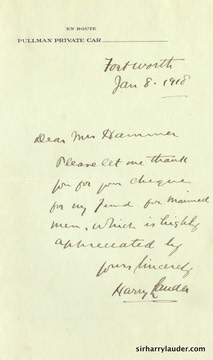 EN ROUTE
PULLMAN PRIVATE CAR
Fort Worth
Jan 8. 1918
Dear Mrs Hammer
Please let me thank
you for your cheque
for my fund for maimed
men, which is highly
appreciated by
yours sincerely
Harry Lauder
sirharrylauder.com